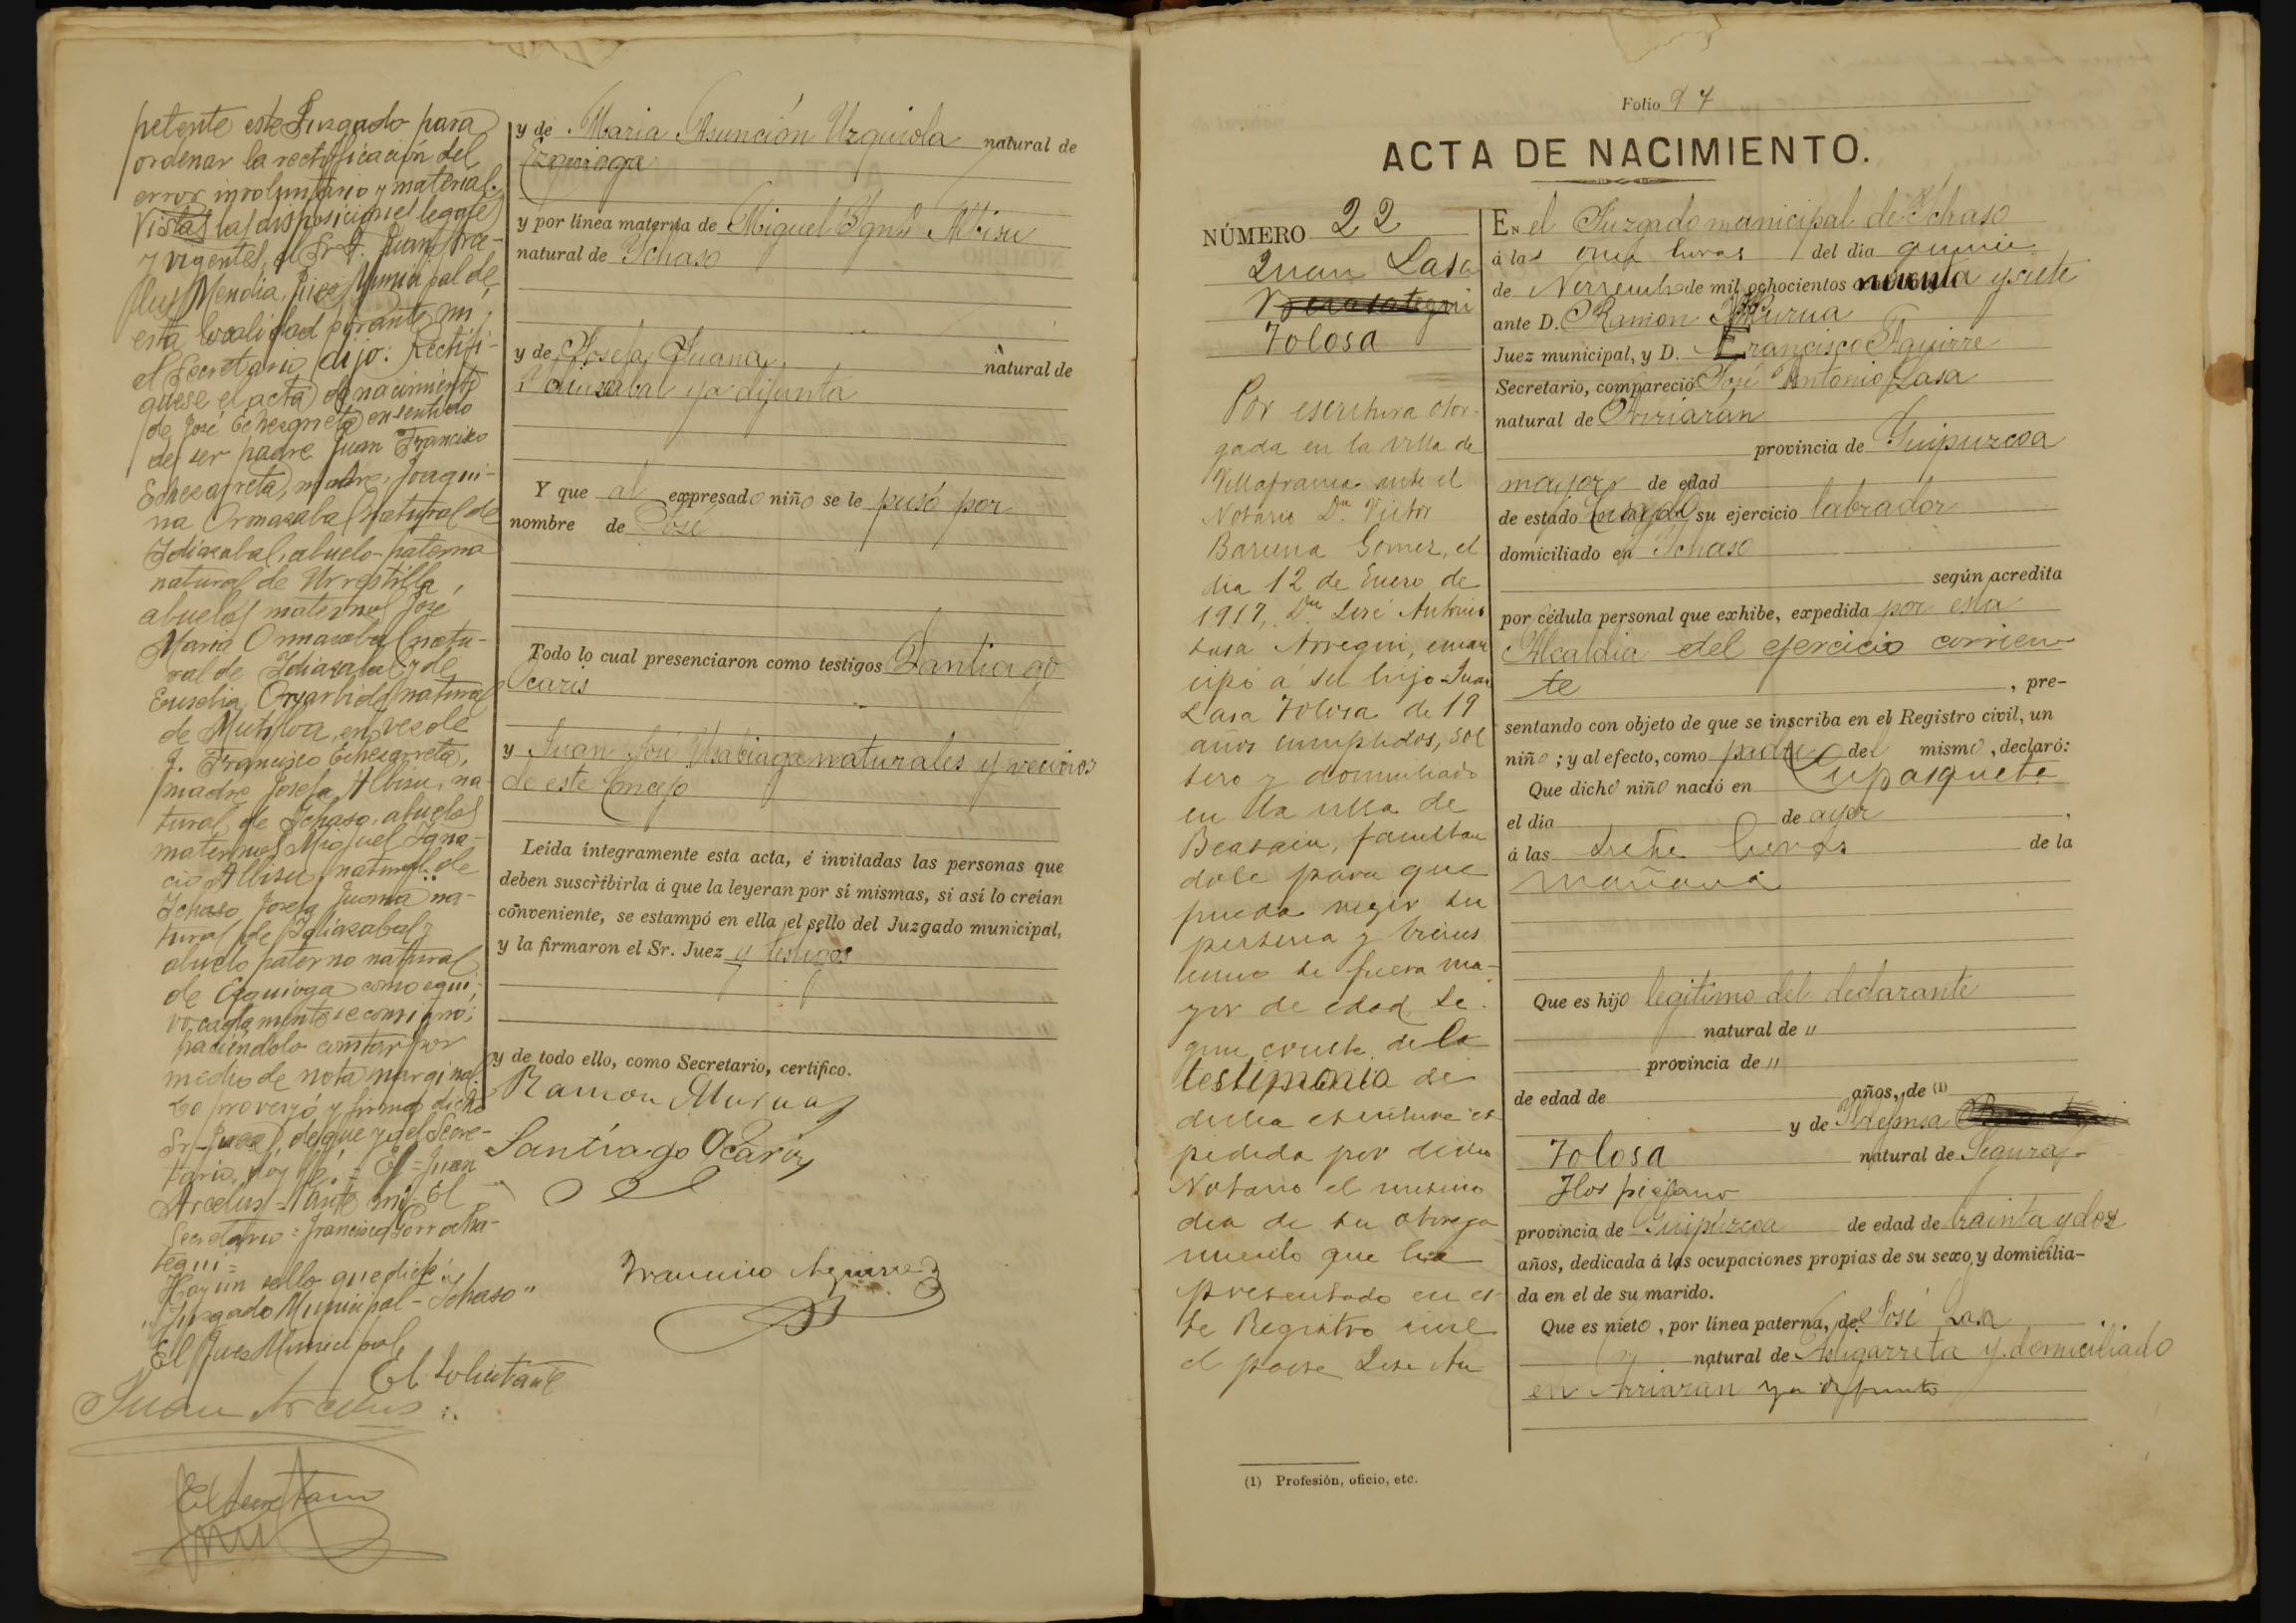 petente este Juzgado para
ordenar la rectificación del
error involuntario y material.
Vistas las disposiciones legales
y vigentes, el Sr. D. Juan Arce-
lus Mendia, Juez Municipal de
esta localidad por ante mi
el Secretario, dijo: Rectifi-
quese el acta de nacimiento
de José Echezarreta en sentido
de ser padre Juan Francisco
Echezarreta, madre, Joaqui-
na Ormazabal natural de
Idiazabal, abuelo paterno
natural de Urrestilla,
abuelos maternos José
Maria Ormazabal natu-
ral de Idiazabal y de
Eusebia natural
de Mutiloa, en vez de
J. Francisco Echezarreta,
madre Josefa Albisu, na-
tural de Ichaso, abuelos
maternos Miguel Igna-
cio Albisu, natural de
Ichaso Josefa Juana na-
tural de Idiazabal y
abuelo paterno natural
de Ezquioga como equi-
vocadamente se consignó;
haciéndolo constar por
medio de nota marginal.
Lo proveyó y firma dicho
Sr. Juez, de que yo el Secre-
tario, doy fé. = El = Juan
Arcelus = Ante mi = El
Secretario = Francisco
tegui =
Hay un sello que dice:
"Juzgado Municipal - Ichaso"
El Juez Municipal
El Solicitante
Juan Arcelus
El Secretario
y de Maria Asunción Urquiola natural de
Ezquioga
y por línea materna de Miguel Ign.º Albisu
natural de Ychaso
y de Josefa Juana natural de
Ydiazabal ya difunta
Y que al expresado niño se le pusó por
nombre de José
Todo lo cual presenciaron como testigos Santiago
Ocariz
y Juan José Usabiaga naturales y vecinos
de este Concejo
Leída íntegramente esta acta, é invitadas las personas que
deben suscribirla á que la leyeran por sí mismas, si así lo creían
conveniente, se estampó en ella el sello del Juzgado municipal,
y la firmaron el Sr. Juez y testigos
y de todo ello, como Secretario, certifico.
Ramon Murua
Santiago Ocariz
Francisco Aguirre
Folio 97
ACTA DE NACIMIENTO.
NÚMERO 22
Juan Lasa
Berasategui
Tolosa
Por escritura otor-
gada en la villa de
Villafranca ante el
Notario Dn. Victor
Gomez, el
dia 12 de Enero de
1917, Dn. José Antonio
Lasa Arregui, eman
cipó á su hijo Juan
Lasa Tolosa de 19
años cumplidos, sol
tero y domiciliado
en la villa de
Beasain, facultan
dole para que
pueda regir su
persona y bienes
como si fuera ma-
yor de edad, se-
gun consta de la
testimonio de
dicha escritura ex
pedida por dicho
Notario el mismo
dia de su otorga
miento que ha
presentado en es-
te Registro civil
el padre José An
En el Juzgado municipal de Ychaso
á las once horas del dia quince
de Noviembre de mil ochocientos noventa y siete
ante D. Ramon Murua
Juez municipal, y D. Francisco Aguirre
Secretario, compareció José Antonio Lasa
natural de Arriaran
provincia de Guipuzcoa
mayor de edad
de estado casado su ejercicio labrador
domiciliado en Ychaso
según acredita
por cédula personal que exhibe, expedida por esta
Alcaldia del ejercicio corrien-
te , pre-
sentando con objeto de que se inscriba en el Registro civil, un
niño; y al efecto, como padre del mismo, declaró:
Que dicho niño nació en
el día de ayer
á las siete horas de la
mañana
Que es hijo legitimo del declarante
natural de "
provincia de "
de edad de años, de (1)
y de Yldefonsa
Tolosa natural de Segura
provincia de Guipúzcoa de edad de trainta y dos
años, dedicada á las ocupaciones propias de su sexo y domicilia-
da en el de su marido.
Que es nieto, por línea paterna, de José Lasa
natural de Astigarreta y domiciliado
en Arriaran ya difunto
(1) Profesión, oficio, etc.